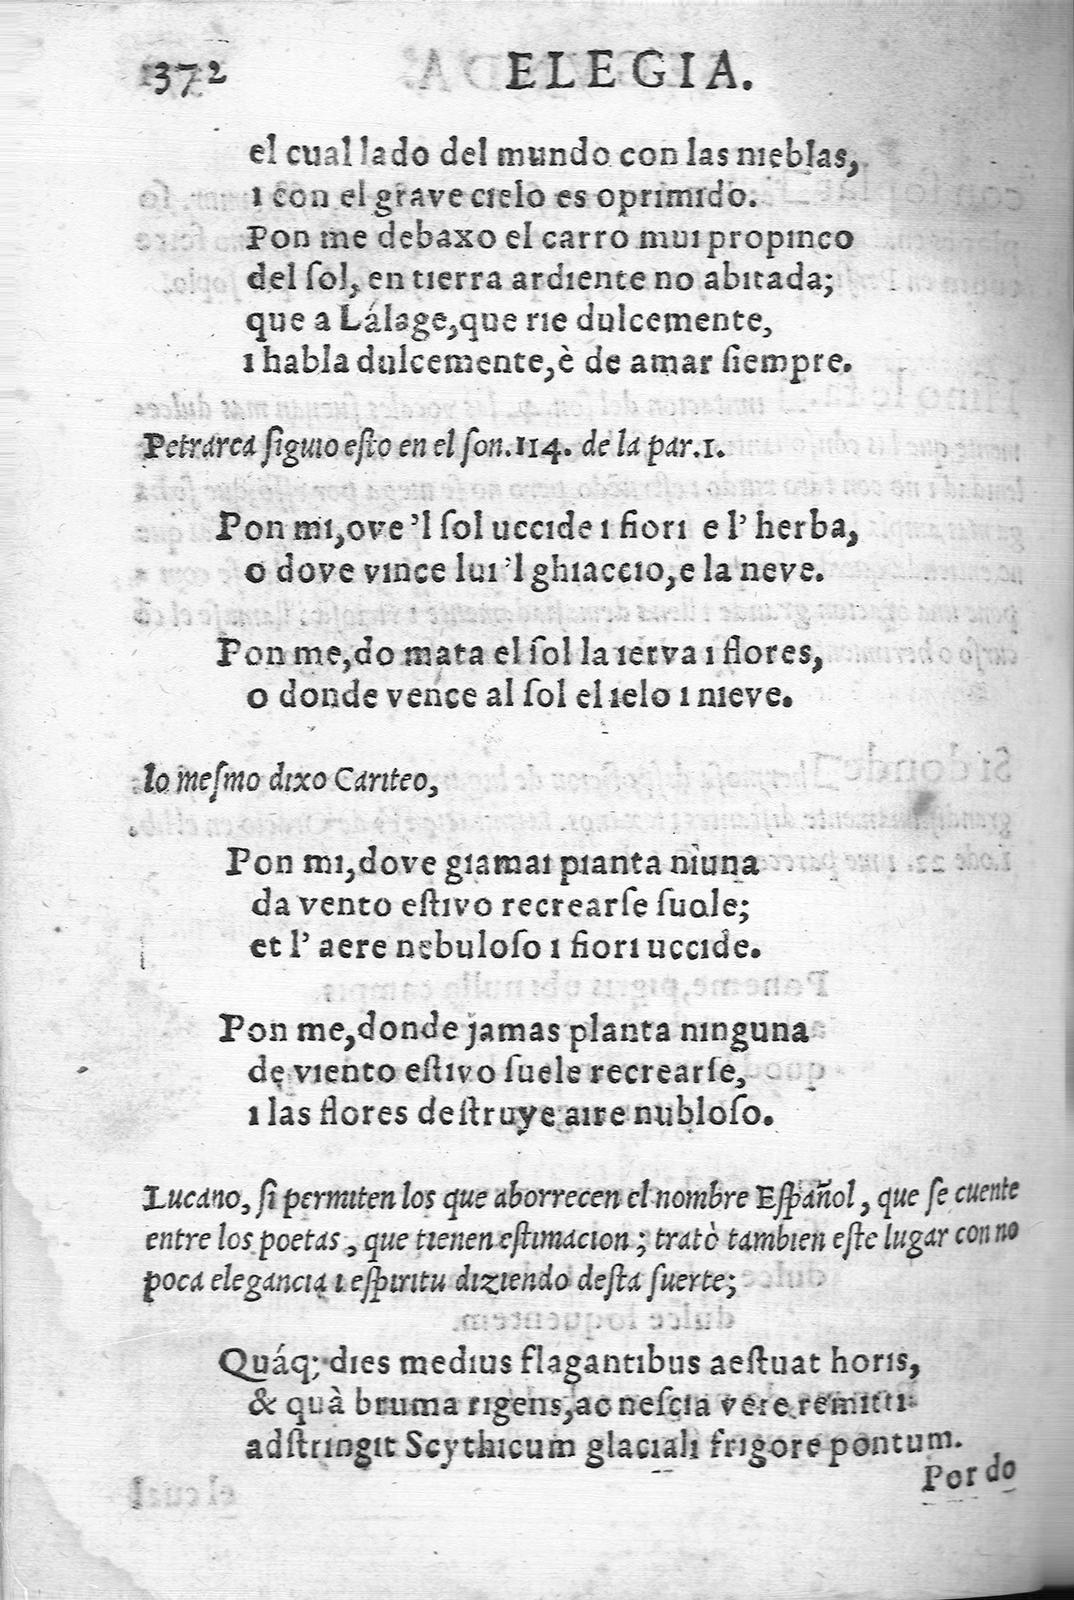 372 ELEGIA.
el cual lado del mundo con las nieblas,
ı con el grave cıelo es oprımıdo.
Pon me debaxo el carro muı propınco
del ſol, en tıerra ardıente no abıtada;
que a Lálage, que rıe dulcemente,
ı habla dulcemente, è de amar ſıempre.
Petrarca ſıguıo eſto en el ſon.114. de la par.1.
Pon mı, ove 'l ſol uccıde ı fıorı e l' herba,
o dove vınce luı 'l ghıaccıo, e la neve.
Pon me, do mata el ſol la ıerva ı flores,
o donde vence al ſol el ıelo ı nıeve.
lo meſmo dıxo Carıteo,
Pon mı, dove gıamaı pıanta nıuna
da vento eſtıvo recrearſe ſuole;
et l' aere nebuloſo ı fıorı uccıde.
Pon me, donde jamas planta nınguna
de vıento eſtıvo ſuele recrearſe,
ı las flores deſtruye aıre nubloſo.
Lucano, ſı permıten los que aborrecen el nombre Eſpañol, que ſe cuente
entre los poetas, que tıenen eſtımacıon; tratò tambıen eſte lugar con no
poca elegancıa ı eſpırıtu dızıendo deſta ſuerte;
Quáq; dıes medıus flagantıbus aeſtuat horıs,
& quà bruma rıgens, ac neſcıa vere remıttı
adſtrıngıt Scythıcum glacıalı frıgore pontum.
Por do